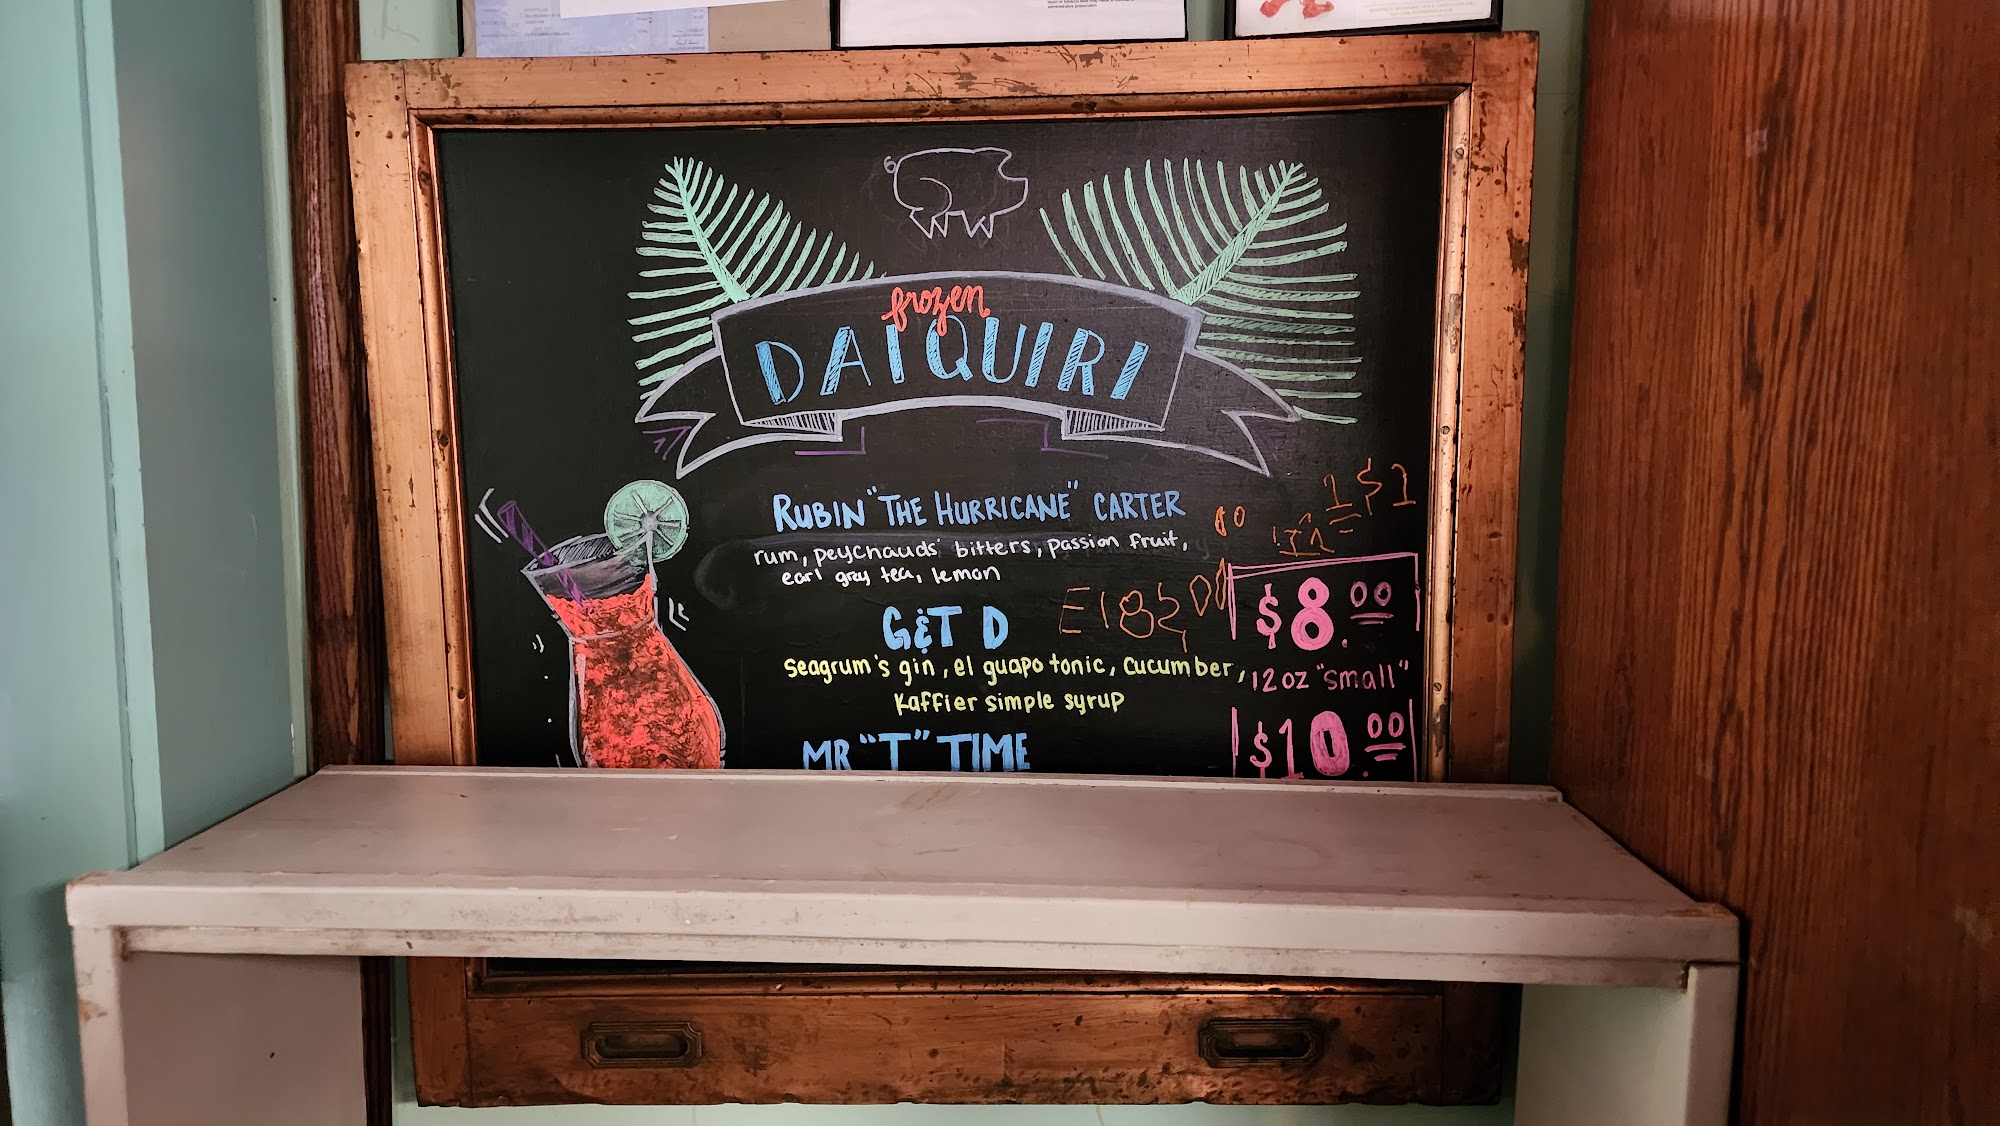 frozen
DAIQUIRI
RUBIN "THE HURRICANE" CARTER
rum, peychauds' bitters, passion fruit,
earl grey tea, lemon
G&T D
seagrum's gin, el guapo tonic, cucumber,
kaffier simple syrup
MR "T" TIME
1 $ 1
$8.00
12 oz "small"
$10.00